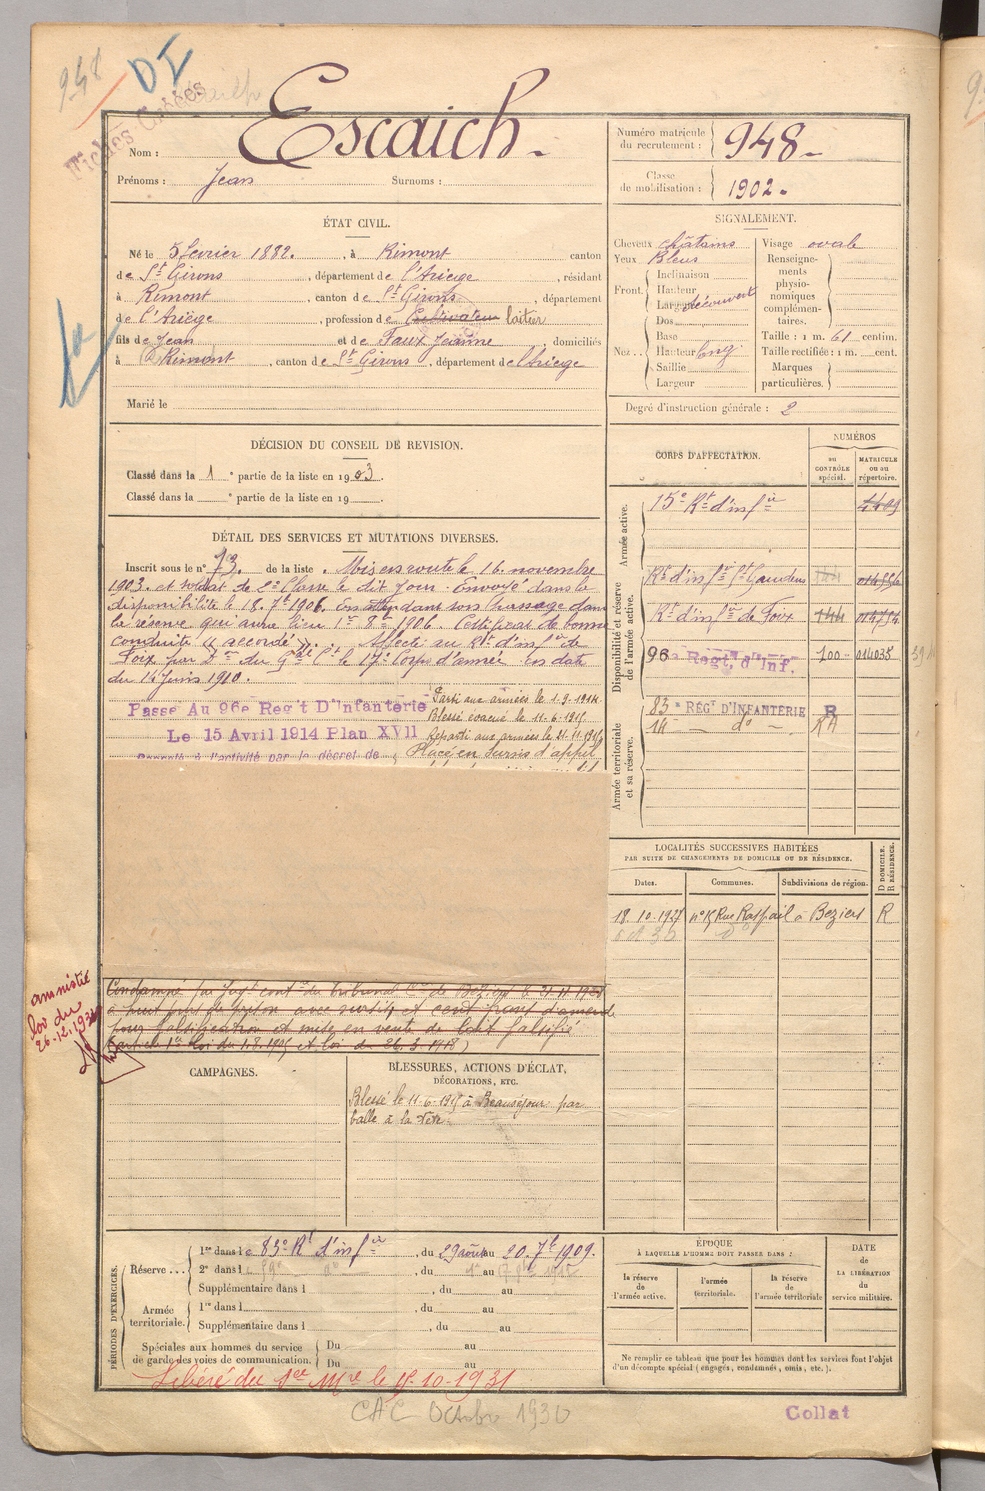 948
DI
Fiches Croisées
Escaich
Nom :
Prénoms : Jean Surnoms :
Numéro matricule du recrutement : 948
Classe de mobilisation : 1902
ÉTAT CIVIL.
Né le 5 Février 1882. , à Rimont canton
de St Girons , département de l'Ariège , résidant
à Rimont , canton de St Girons , département
de l'Ariège , profession de Cultivateur laitier
fils de Jean et de Faur Jeanne , domiciliés
à Rimont , canton de St Girons , département de l'Ariège
Marié le
SIGNALEMENT.
Cheveux châtains
Yeux Bleus
Front. Inclinaison
Hauteur
Largeur découvert
Nez Dos
Base
Hauteur long
Saillie
Largeur
Visage ovale
Renseignements physionomiques complémentaires.
Taille : 1 m. 61 centim.
Taille rectifiée : 1 m. cent.
Marques particulières.
Degré d'instruction générale : 2
DÉCISION DU CONSEIL DE REVISION.
Classé dans la 1 e partie de la liste en 1903.
Classé dans la e partie de la liste en 19
DÉTAIL DES SERVICES ET MUTATIONS DIVERSES.
Inscrit sous le n° 73. de la liste . Mis en route le 16 novembre
1903. et soldat de 2e Classe le dit jour. Envoyé dans la
disponibilité le 18. 7bre 1906. en attendant son passage dans
la réserve qui aura lieu 1er 8bre 1906. Certificat de bonne
conduite "accordé". Affecté au Rt d'infrie de
Foix par Don du Gal Ct le 17e Corps d'armée en date
du 14 juin 1910.
Passé Au 96e Reg't D'Infanterie
Le 15 Avril 1914 Plan XVII
Rappelé à l'activité par le décret de
Parti aux armées le 1.9.1914
Blessé évacué le 11-6-1915
Reparti aux armées le 21.11.1915
Placé en Sursis d'appel
CORPS D'AFFECTATION.
NUMÉROS
au CONTRÔLE spécial.
MATRICULE ou au répertoire.
Armée active.
15e Rt d'infie 4409
Disponibilité et réserve de l'armée active.
Rt d'infie St Gaudens
Rt d'infie de Foix
96e Regt, d'Inf. 100 014035
Armée territoriale et sa réserve.
83e RÉGT D'INFANTERIE R
14 — do — RA
LOCALITÉS SUCCESSIVES HABITÉES
PAR SUITE DE CHANGEMENTS DE DOMICILE OU DE RÉSIDENCE.
Dates. Communes. Subdivisions de région. D DOMICILE. R RÉSIDENCE.
18.10.1927 n° 15 Rue Raspail à Beziers R
amnistié
loi du
26.12.1931
Condamné par Jugt contre du tribunal Cel de Béziers le 21-11-1930
à huit jours de prison avec sursis et cent francs d'amende
pour falsification et mise en vente de lait falsifié
(article 1er loi du 1.8.1905 et loi du 26.3.1918)
CAMPAGNES.
BLESSURES, ACTIONS D'ÉCLAT,
DÉCORATIONS, ETC.
Blessé le 11-6-1915 à Beauséjour par
balle à la tête.
PÉRIODES D'EXERCICES.
Réserve . . . 1re dans le 83e Rt d'infie , du 29 août au 20. 7bre 1909.
2e dans l , du au
Supplémentaire dans l , du au
Armée territoriale. 1re dans l , du au
Supplémentaire dans l , du au
Spéciales aux hommes du service de garde des voies de communication. Du au
Du au
ÉPOQUE
À LAQUELLE L'HOMME DOIT PASSER DANS :
la réserve de l'armée active.
l'armée territoriale.
la réserve de l'armée territoriale
DATE de LA LIBÉRATION du service militaire.
Ne remplir ce tableau que pour les hommes dont les services font l'objet
d'un décompte spécial (engagés, condamnés, omis, etc.).
Libéré du Sce Mre le 15-10-1931
CAC Octobre 1930
Collat